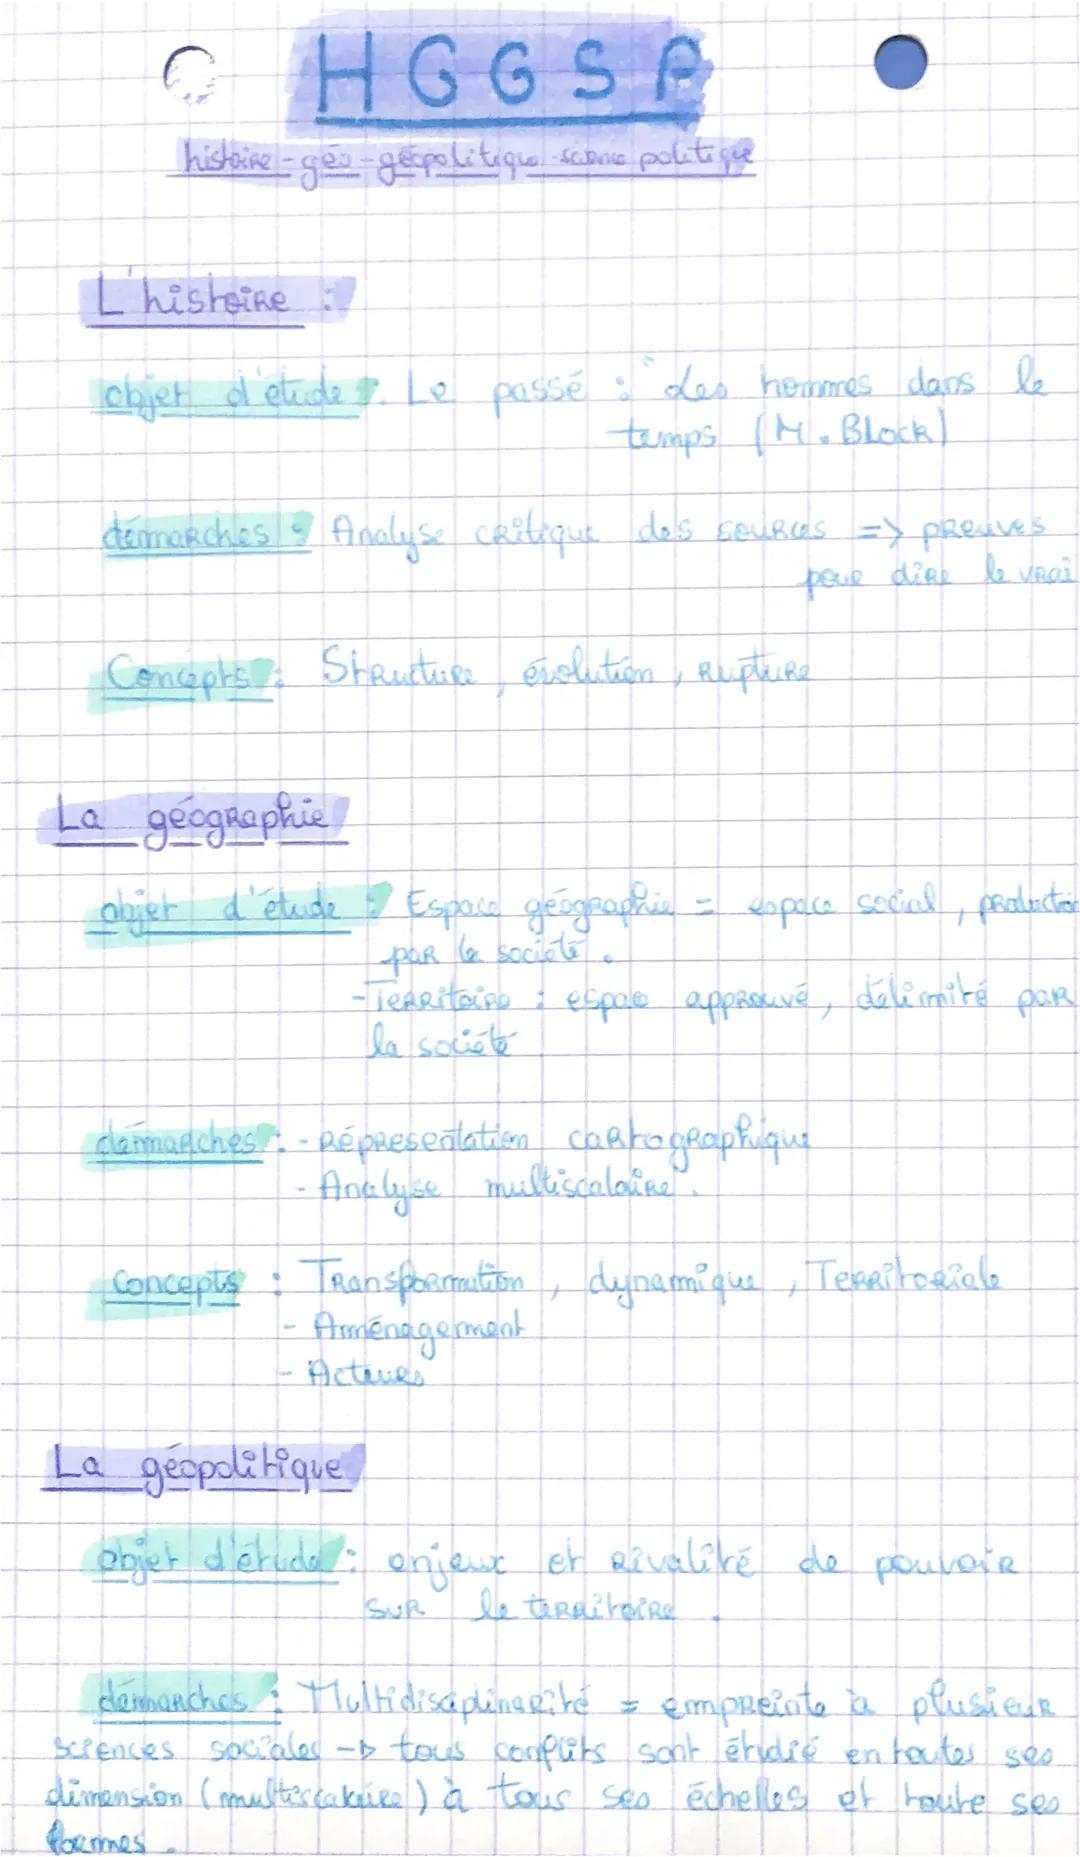 HGGSP
histoire - géo - géopolitique - science politique
L'histoire :
objet d'étude : Le passé : "des hommes dans le
temps (M. Block)
démarches : Analyse critique des sources => preuves
pour dire le vrai
Concepts : Structure, évolution, rupture
La géographie
objet d'étude : Espace géographie = espace social, production
par la société.
- Territoire : espace approuvé, délimité par
la société
démarches : - Réprésentation cartographique
- Analyse multiscalaire.
Concepts : Transformation, dynamique, Territoriale
- Aménagement
- Acteurs
La géopolitique
objet d'étude : enjeux et rivalité de pouvoir
sur le territoire.
démarches : Multidisciplinarité = empreinte à plusieur
sciences sociales -> tous conflits sont étudié en toutes ses
dimension (multiscalaire) à tous ses échelles et toute ses
formes.